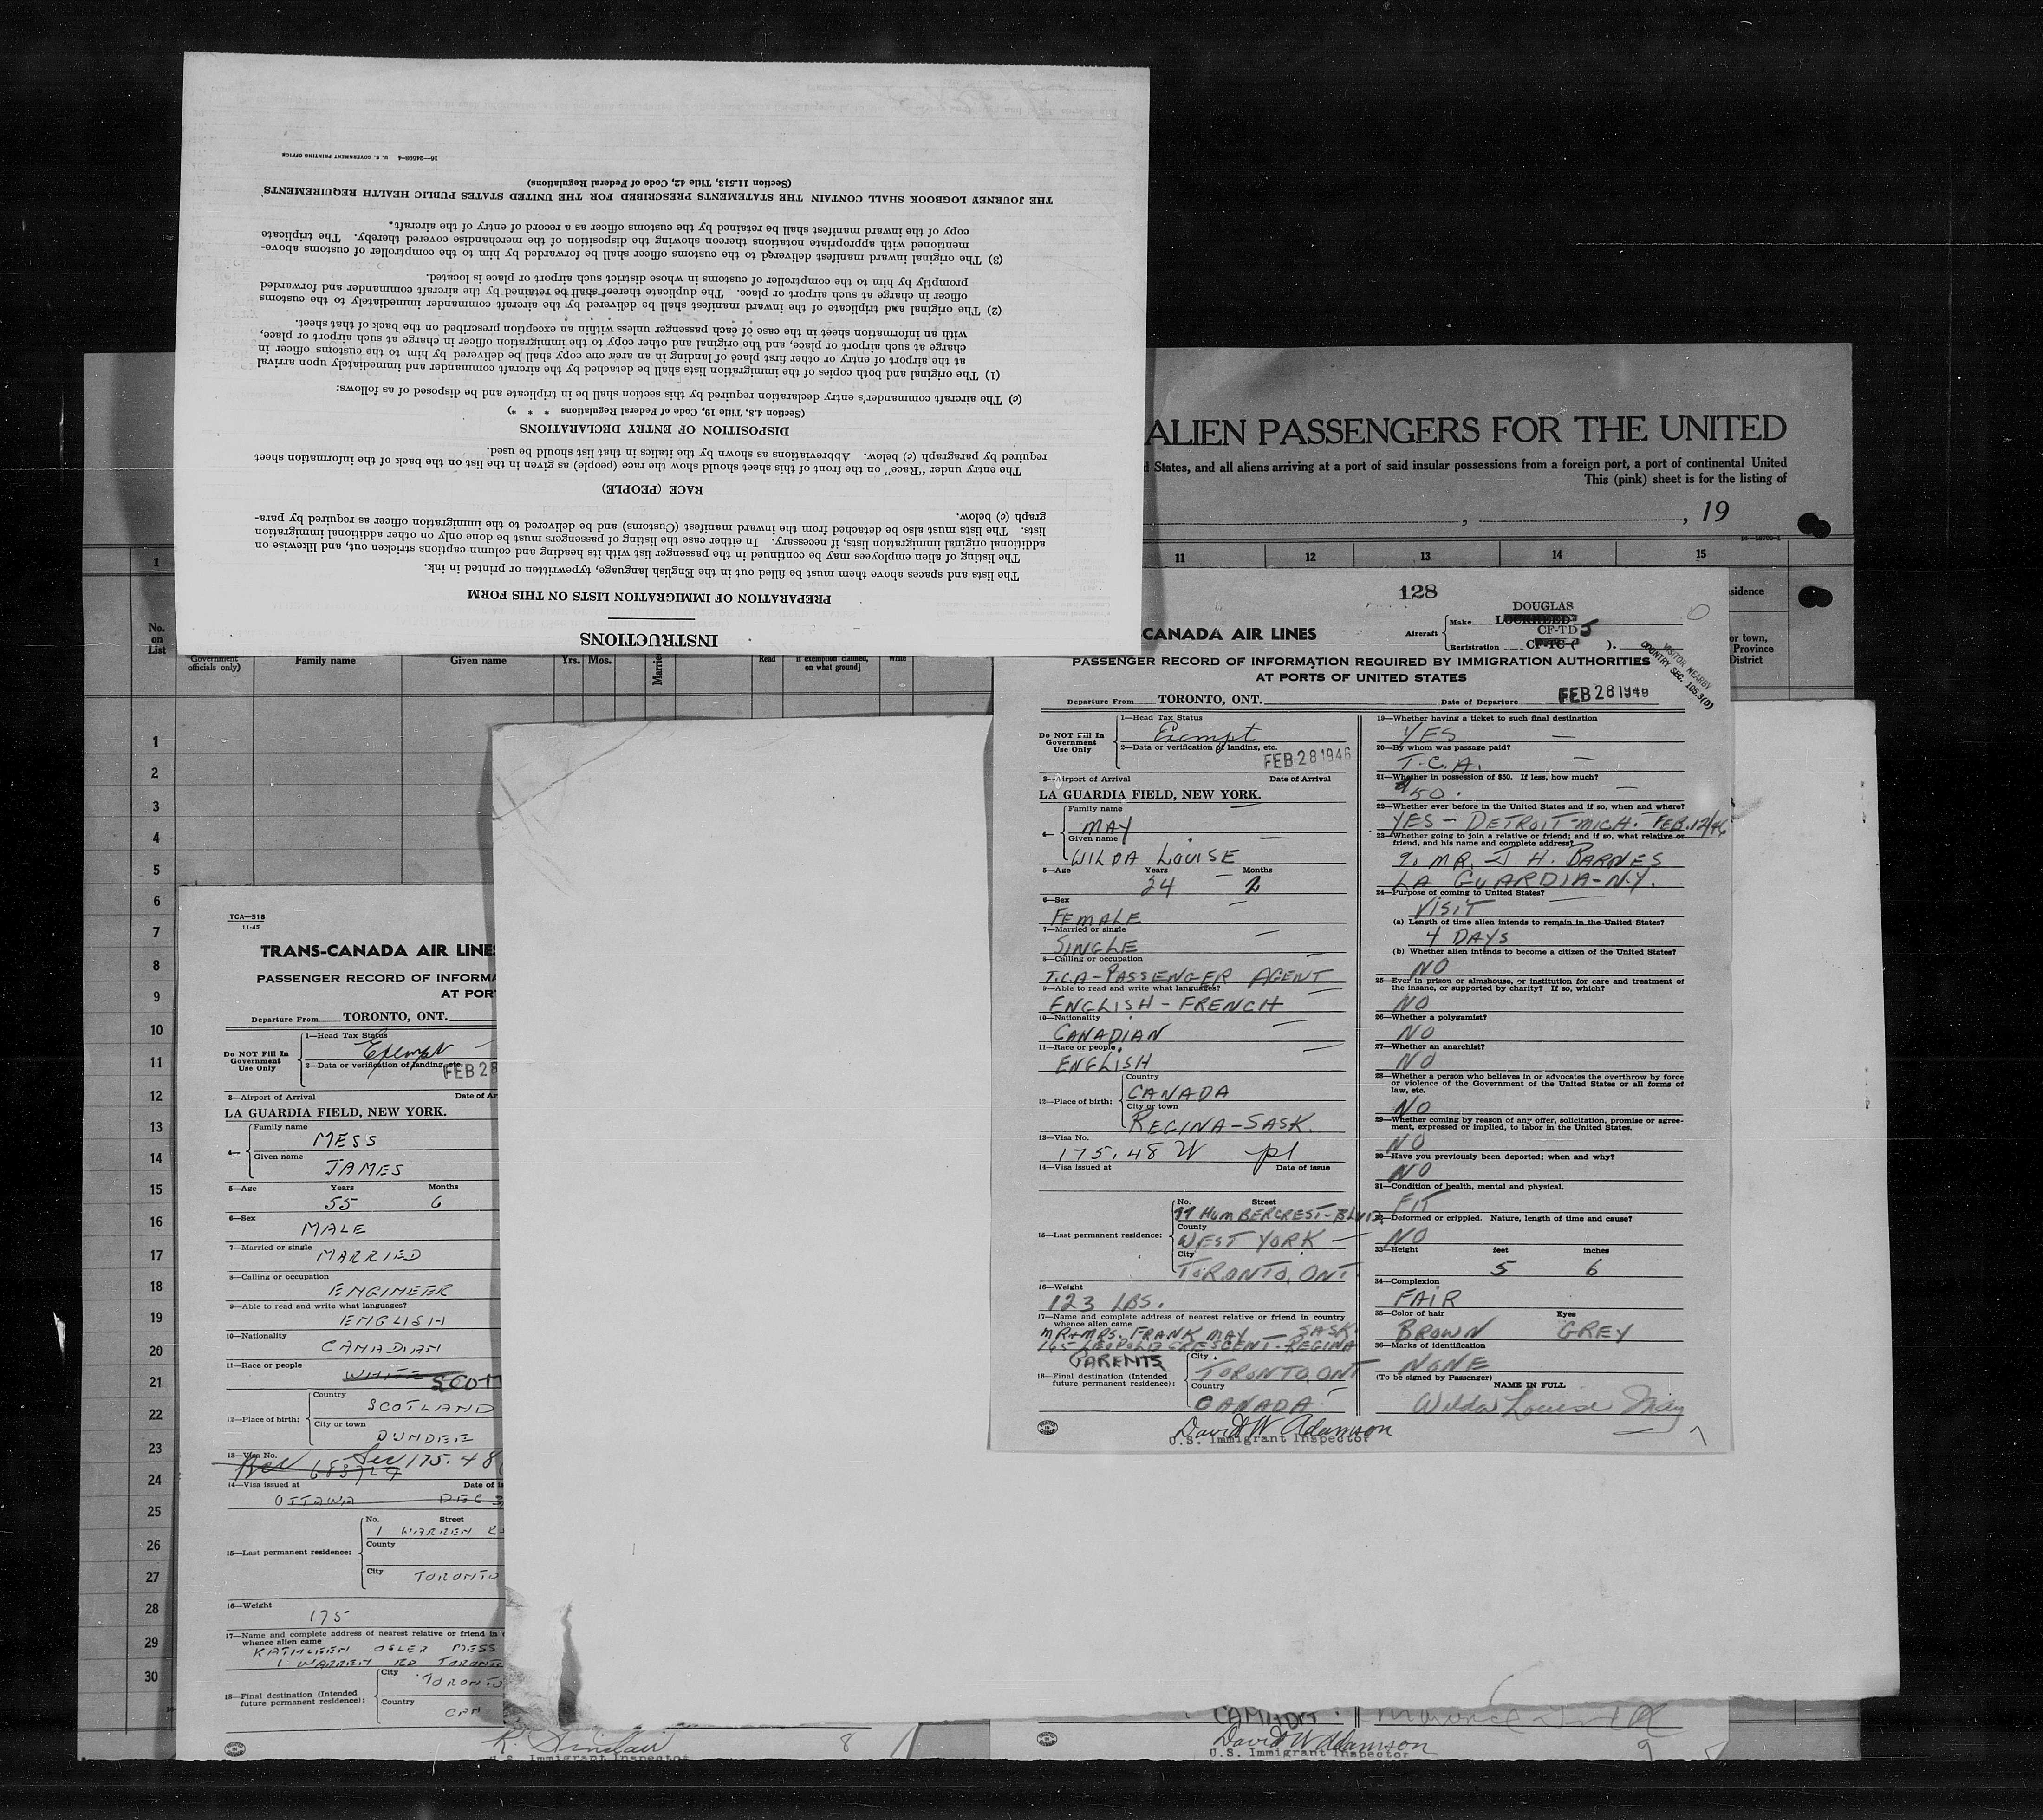 INSTRUCTIONS
PREPARATION OF IMMIGRATION LISTS ON THIS FORM
The lists and spaces above them must be filled out in the English language, typewritten or printed in ink.
The listing of alien employees may be continued in the passenger list with its heading and column captions stricken out, and likewise on
additional original immigration lists, if necessary. In either case the listing of passengers must be done only on other additional immigration
lists. The lists must also be detached from the inward manifest (Customs) and be delivered to the immigration officer as required by para-
graph (c) below.
RACE (PEOPLE)
The entry under "Race" on the front of this sheet should show the race (people) as given in the list on the back of the information sheet
required by paragraph (c) below. Abbreviations as shown by the italics in that list should be used.
DISPOSITION OF ENTRY DECLARATIONS
(Section 4.8, Title 19, Code of Federal Regulations * * *)
(c) The aircraft commander's entry declaration required by this section shall be in triplicate and be disposed of as follows:
(1) The original and both copies of the immigration lists shall be detached by the aircraft commander and immediately upon arrival
at the airport of entry or other first place of landing in an area one copy shall be delivered by him to the customs officer in
charge at such airport or place, and the original and other copy to the immigration officer in charge at such airport or place,
with an information sheet in the case of each passenger unless within an exception prescribed on the back of that sheet.
(2) The original and triplicate of the inward manifest shall be delivered by the aircraft commander immediately to the customs
officer in charge at such airport or place. The duplicate thereof shall be retained by the aircraft commander and forwarded
promptly by him to the comptroller of customs in whose district such airport or place is located.
(3) The original inward manifest delivered to the customs officer shall be forwarded by him to the comptroller of customs above-
mentioned with appropriate notations thereon showing the disposition of the merchandise covered thereby. The triplicate
copy of the inward manifest shall be retained by the customs officer as a record of entry of the aircraft.
THE JOURNEY LOGBOOK SHALL CONTAIN THE STATEMENTS PRESCRIBED FOR THE UNITED STATES PUBLIC HEALTH REQUIREMENTS
(Section 11.513, Title 42, Code of Federal Regulations)
16—24598-4 U. S. GOVERNMENT PRINTING OFFICE
ALIEN PASSENGERS FOR THE UNITED
States, and all aliens arriving at a port of said insular possessions from a foreign port, a port of continental United
This (pink) sheet is for the listing of
, , 19
1 11 12 13 14 15
No.
on
List
Government
officials only)
Family name Given name Yrs. Mos. Read if exemption claimed,
on what ground] Write
or town,
Province
District
1
2
3
4
5
6
7
8
9
10
11
12
13
14
15
16
17
18
19
20
21
22
23
24
25
26
27
28
29
30
TCA—518
11-45
TRANS-CANADA AIR LINES
PASSENGER RECORD OF INFORMA
AT POR
Departure From TORONTO, ONT.
Do NOT Fill In
Government
Use Only
1—Head Tax Status
Exempt
2—Data or verification of landing, etc.
FEB 28
3—Airport of Arrival Date of Ar
LA GUARDIA FIELD, NEW YORK.
4— Family name
MESS
Given name
JAMES
5—Age Years Months
55 6
6—Sex
MALE
7—Married or single
MARRIED
8—Calling or occupation
ENGINEER
9—Able to read and write what languages?
ENGLISH
10—Nationality
CANADIAN
11—Race or people
WHITE SCOT
12—Place of birth: Country
SCOTLAND
City or town
DUNDEE
13—Visa No.
Sec 175.48
14—Visa issued at Date of is
OTTAWA DEC 3
15—Last permanent residence: No. Street
1 WARREN R
County
City TORONTO
16—Weight
175
17—Name and complete address of nearest relative or friend in
whence alien came
KATHLEEN OSLER MESS
1 WARREN RD TORONTO
18—Final destination (Intended
future permanent residence):
City TORONTO
Country
CAN
R. Sinclair
U.S. Immigrant Inspector
8
128
-CANADA AIR LINES
Aircraft Make LOCKHEED DOUGLAS
Registration CF-TC ( ). CF-TD J
VISITOR NEARBY
COUNTRY SEC. 105.3(D)
PASSENGER RECORD OF INFORMATION REQUIRED BY IMMIGRATION AUTHORITIES
AT PORTS OF UNITED STATES
Departure From TORONTO, ONT. Date of Departure FEB 28 1946
Do NOT Fill In
Government
Use Only
1—Head Tax Status
Exempt
2—Data or verification of landing, etc.
FEB 28 1946
3—Airport of Arrival Date of Arrival
LA GUARDIA FIELD, NEW YORK.
4— Family name
MAY
Given name
WILDA LOUISE
5—Age Years Months
24 2
6—Sex
FEMALE
7—Married or single
SINGLE
8—Calling or occupation
T.C.A-PASSENGER AGENT
9—Able to read and write what languages?
ENGLISH - FRENCH
10—Nationality
CANADIAN
11—Race or people
ENGLISH
12—Place of birth: Country
CANADA
City or town
REGINA-SASK.
13—Visa No.
175.48 W pl
14—Visa issued at Date of issue
15—Last permanent residence: No. Street
77 HUMBERCREST-BLVD.
County
WEST YORK
City
TORONTO, ONT
16—Weight
123 LBS.
17—Name and complete address of nearest relative or friend in country
whence alien came
MR+MRS. FRANK MAY SASK.
165 LEOPOLD CRESCENT-REGINA
PARENTS
18—Final destination (Intended
future permanent residence):
City
TORONTO, ONT
Country
CANADA
David W Adamson
U.S. Immigrant Inspector
19—Whether having a ticket to such final destination
YES
20—By whom was passage paid?
T.C.A.
21—Whether in possession of $50. If less, how much?
$50.
22—Whether ever before in the United States and if so, when and where?
YES - DETROIT-MICH. FEB.12/46
23—Whether going to join a relative or friend; and if so, what relative or
friend, and his name and complete address?
MR. J H. BARNES
LA GUARDIA-N.Y.
24—Purpose of coming to United States?
VISIT
(a) Length of time alien intends to remain in the United States?
4 DAYS
(b) Whether alien intends to become a citizen of the United States?
NO
25—Ever in prison or almshouse, or institution for care and treatment of
the insane, or supported by charity? If so, which?
NO
26—Whether a polygamist?
NO
27—Whether an anarchist?
NO
28—Whether a person who believes in or advocates the overthrow by force
or violence of the Government of the United States or all forms of
law, etc.
NO
29—Whether coming by reason of any offer, solicitation, promise or agree-
ment, expressed or implied, to labor in the United States.
NO
30—Have you previously been deported; when and why?
NO
31—Condition of health, mental and physical.
FIT
32—Deformed or crippled. Nature, length of time and cause?
NO
33—Height feet inches
5 6
34—Complexion
FAIR
35—Color of hair Eyes
BROWN GREY
36—Marks of identification
NONE
(To be signed by Passenger)
NAME IN FULL
Wilda Louise May
7
CANADA
David W Adamson
U.S. Immigrant Inspector
9